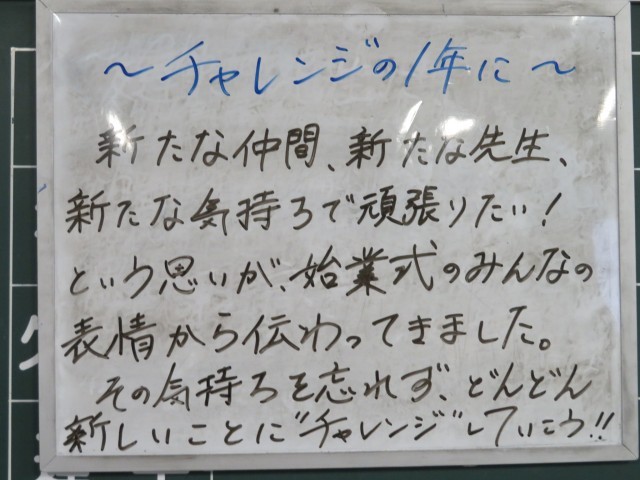 ～チャレンジの1年に～
新たな仲間、新たな先生、
新たな気持ちで頑張りたい！
という思いが、始業式のみんなの
表情から伝わってきました。
その気持ちを忘れず、どんどん
新しいことに"チャレンジ"していこう!!